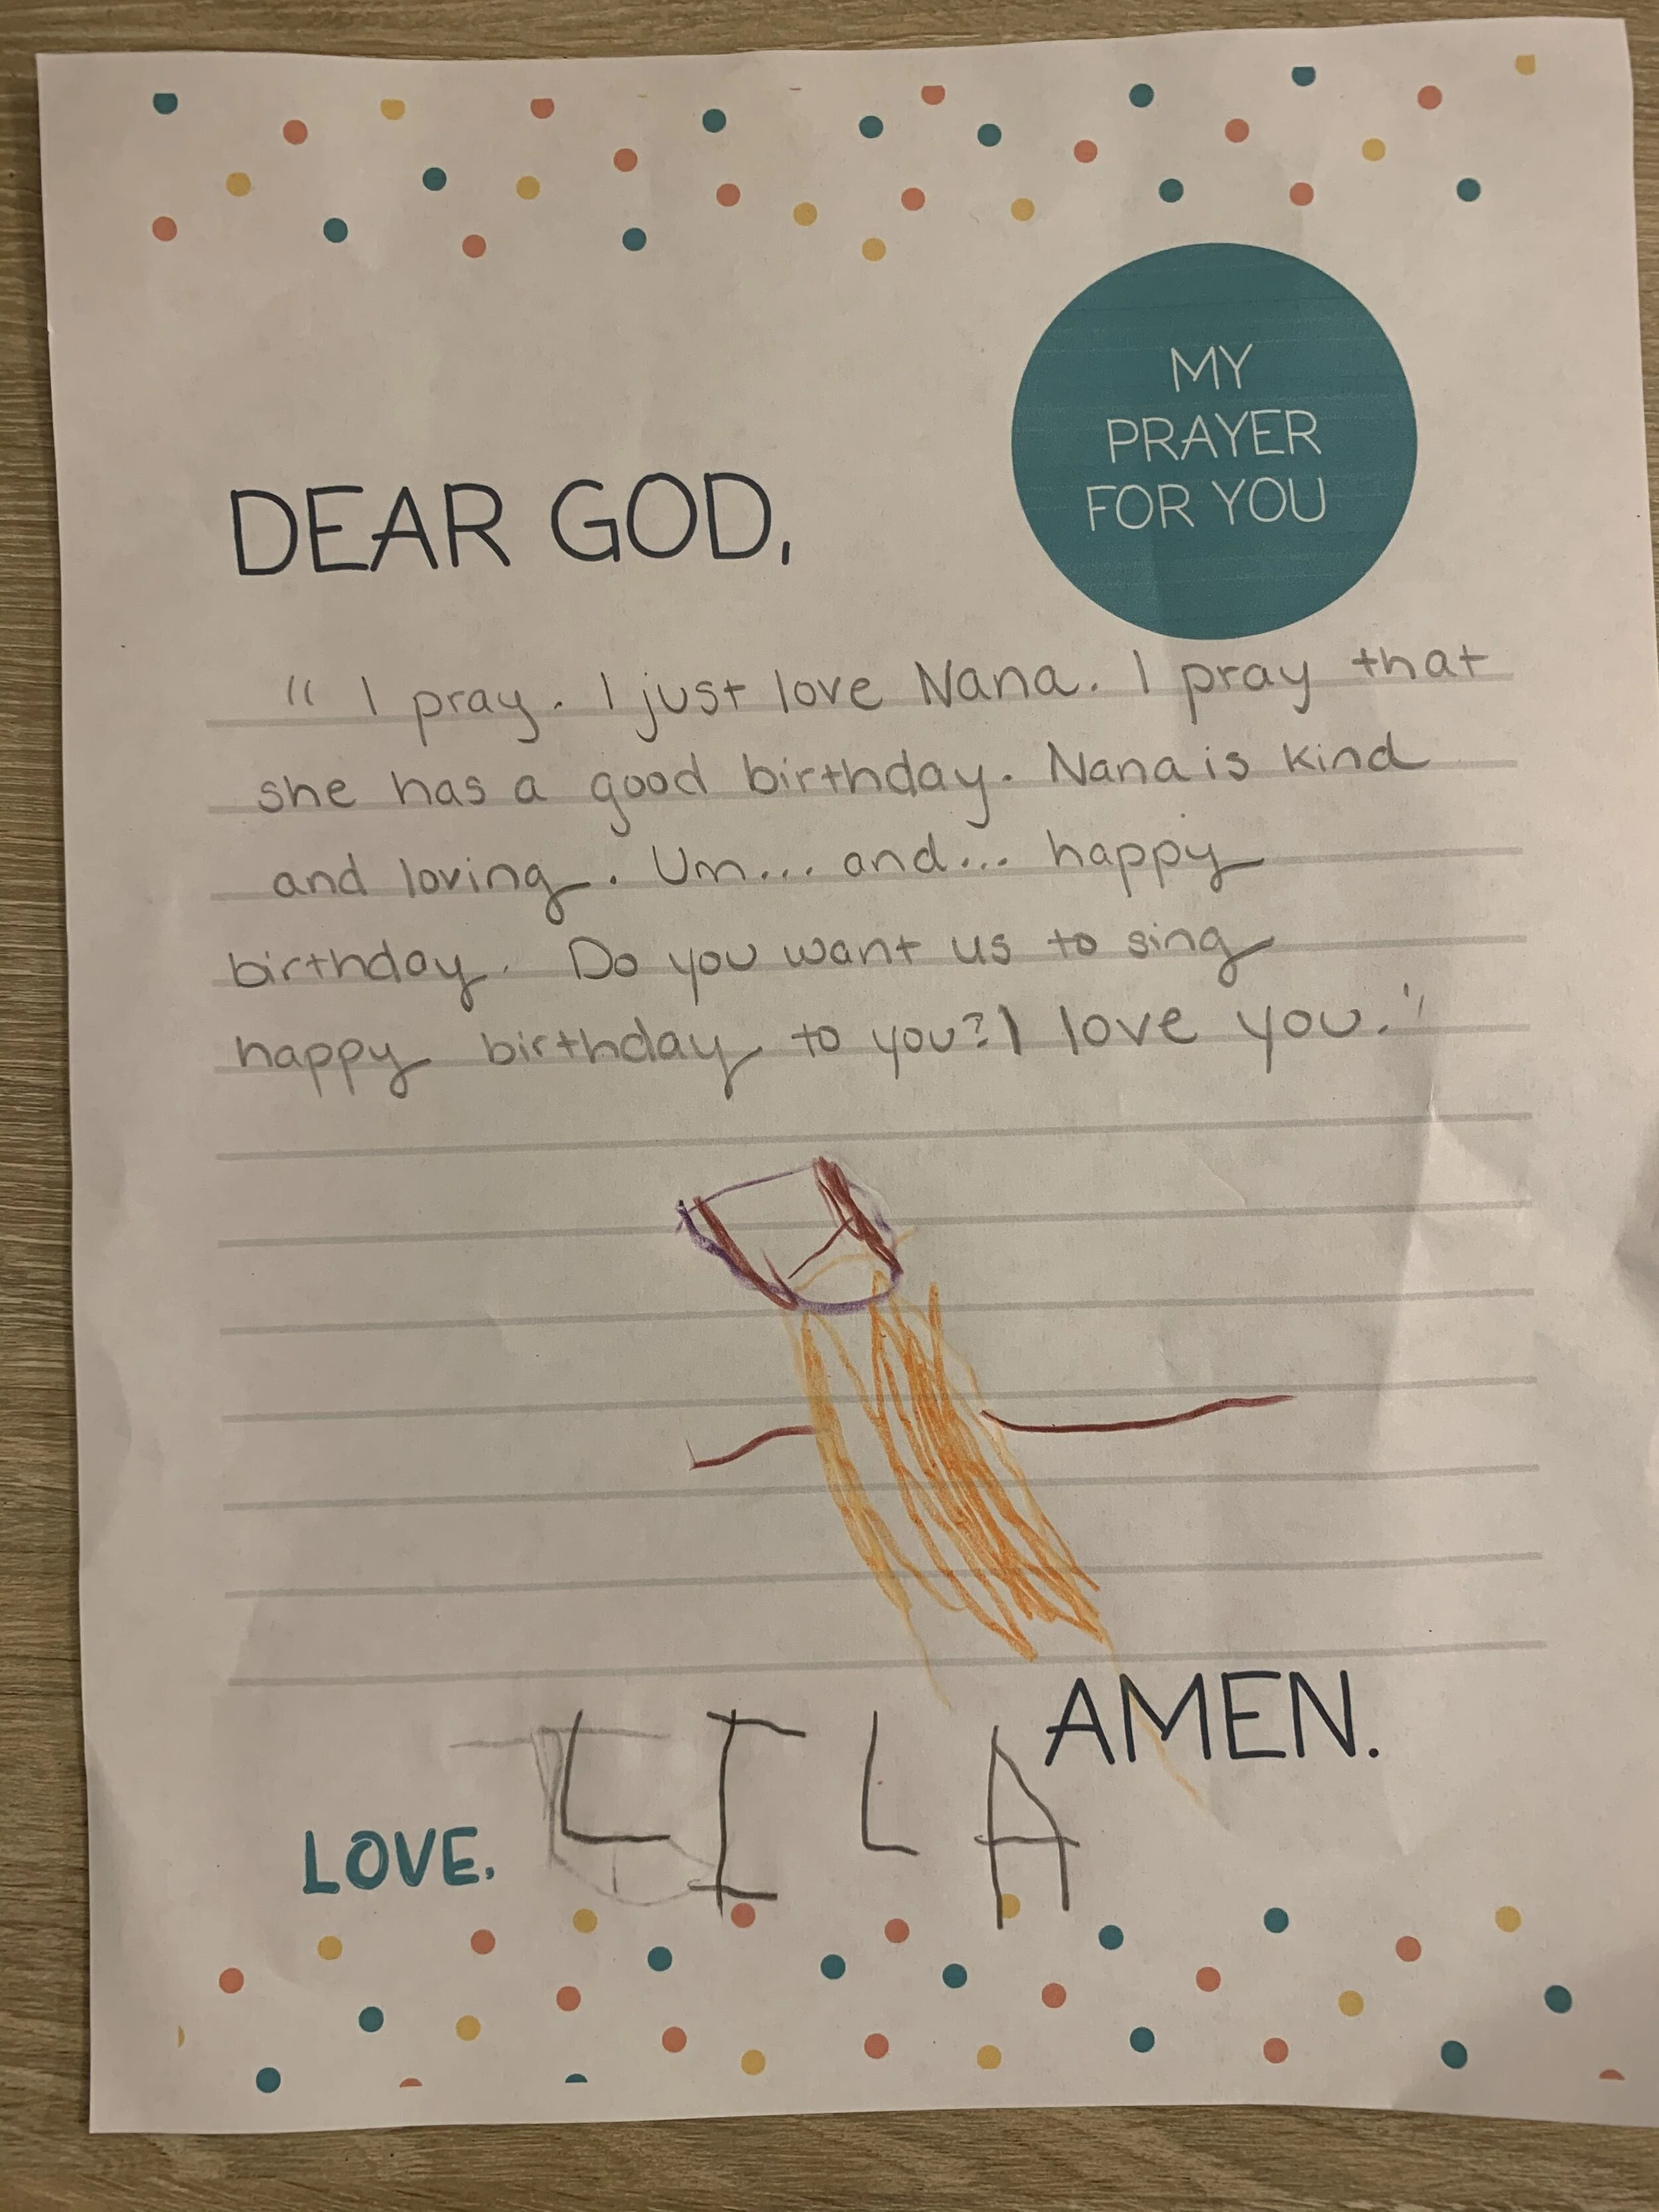 MY
PRAYER
FOR YOU
DEAR GOD,
"I pray. I just love Nana. I pray that
she has a good birthday. Nana is kind
and loving. Um... and... happy
birthday. Do you want us to sing
happy birthday to you? I love you."
AMEN.
LOVE, LILA